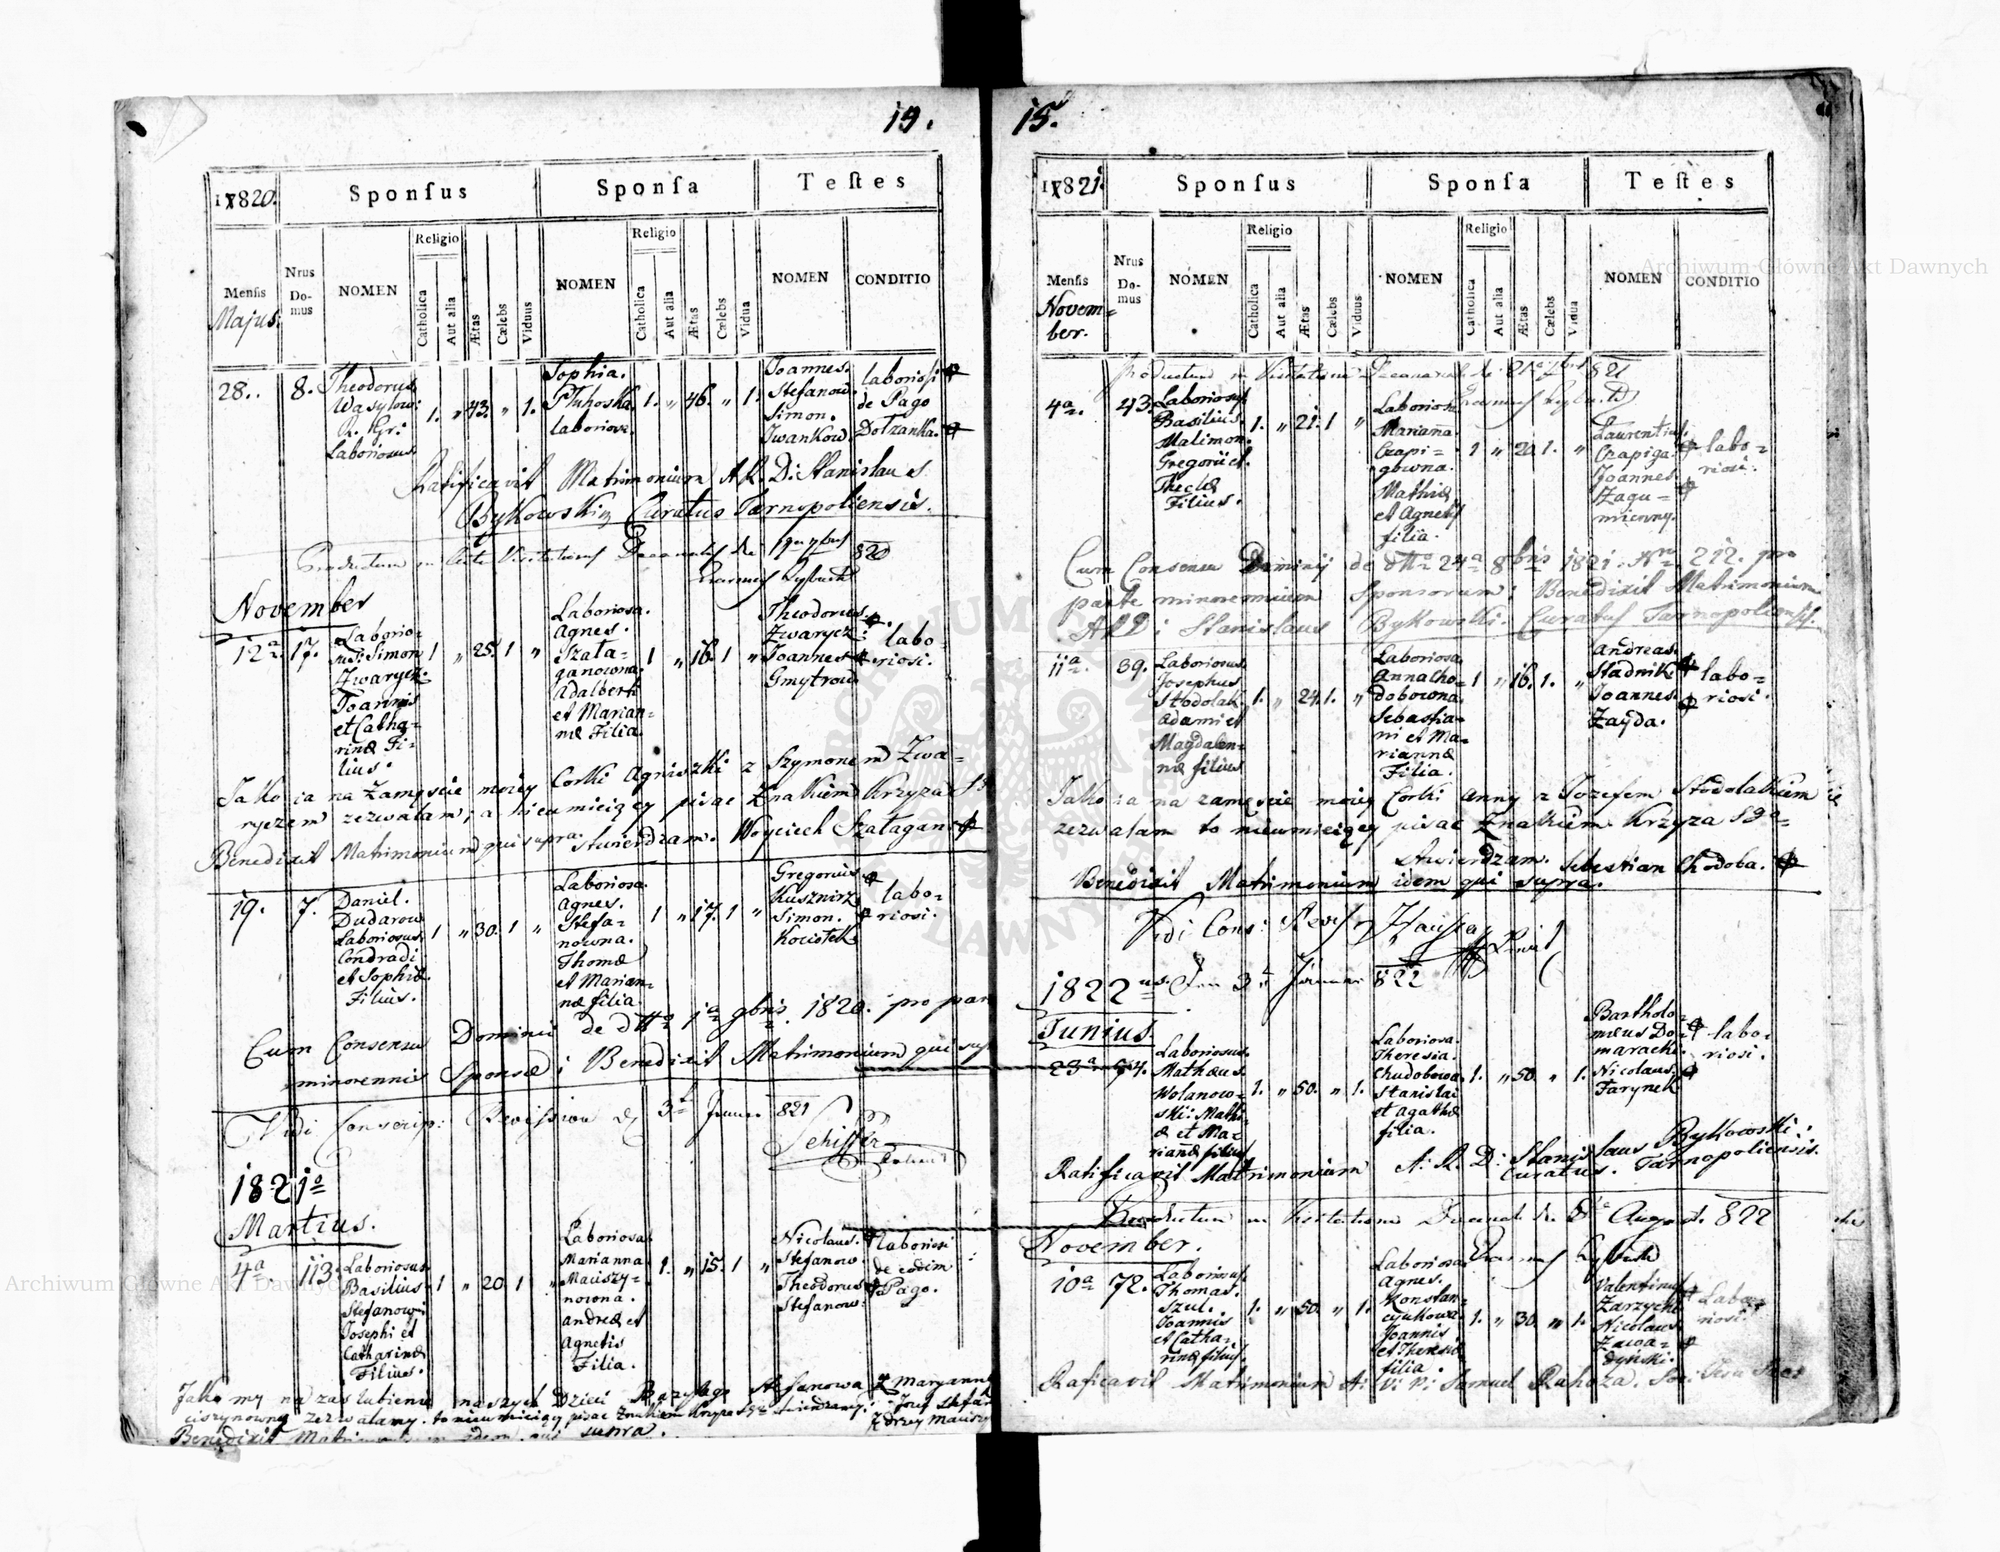 19.
17820.
Sponſus
Sponſa
Teſtes
Menſis
Majus.
Nrus Do-mus
NOMEN
Religio
Catholica
Aut alia
Ætas
Cælebs
Viduus
NOMEN
Religio
Catholica
Aut alia
Ætas
Cælebs
Vidua
NOMEN
CONDITIO
28.. 8.
Theodorus
Wasylow:
R. Gr:
Laboriosus
1. " 43. " 1.
Sophia.
Laboriosa.
1. " 46. " 1.
Joannes.
Stefanow.
Simon.
Iwankow.
laboriosi
de Pago
Dotzanka.
Ratificavit Matrimonium A.R.D: Stanislaus
Bykowski Curatus Tarnopoliensis.
November
12ª 17.
Laborio-
sus: Simon
Zwarycz.
Joannis
et Catha-
rinæ Fi-
lius.
1 " 25. 1 "
Laboriosa.
Agnes.
Szata-
ganowna.
Adalberti
et Marian-
næ Filia.
1 " 16. 1 "
Theodorus.
Zwarycz.
Joannes
Gmytrow
labo-
riosi.
Jako ia na Zamęscie moiey Corki Agniszki z Szymonem Zwa-
ryczem zezwalam, a nieumieiący pisac Znakiem Krzyza S
stwierdzam. Woyciech Szatagan
Benedixit Matrimonium qui supra.
19. 7.
Daniel.
Dudarow
Laboriosus.
Condradi
et Sophiæ
Filius.
1 " 30. 1 "
Laboriosa.
Agnes.
Stefa-
nowna.
Thomæ
et Marian-
næ filia
1 " 17. 1 "
Gregorius
Kusznirz.
Simon.
Kociotek
labo-
riosi.
Cum Consensu Dominii de dtto 1ª 9bris 1820. pro par
minorennis Sponsæ: Benedixit Matrimonium qui sup
Vidi Conscrip: Revission 3 821
1821º
Martius.
4ª 113.
Laboriosus
Basilius
Stefanow:
Josephi et
Catharinæ
Filius.
1 " 20 1 "
Laboriosa
Marianna
Maciszy-
nowna.
Andreæ et
Agnetis
Filia.
1. " 15. 1 "
Nicolaus.
Stefanow
Theodorus
Stefanow.
laboriosi
de eodem
Pago.
Jako my na zaslubienie naszych Dzieci Bazylego Stefanowa z Maryanna
ciszynowną zezwalamy. to nieumieiący pisac Znakiem Krzyza Sgo stwierdzamy: Jozef Stefan
Benedixit Matrimonium idem qui supra.
15.
17821.
Sponſus
Sponſa
Teſtes
Menſis
Novem-
ber.
Nrus Do-mus
NOMEN
Religio
Catholica
Aut alia
Ætas
Cælebs
Viduus
NOMEN
Religio
Catholica
Aut alia
Ætas
Cælebs
Vidua
NOMEN
CONDITIO
4ª. 43.
Laboriosus
Basilius.
Malimon.
Gregorii et
Theclæ
Filius.
1. " 21. 1 "
Laboriosa
Marianna.
Czapi-
gowna.
Mathiæ
et Agnetis
filia.
1 " 20. 1. "
Laurentius.
Czapiga.
Joannes.
Zagu-
mienny.
labo-
riosi.
Cum Consensu Dominij de dtto 24ª 8bris 1821. Nro 212. pro
parte minorennium Sponsorum: Benedixit Matrimonium
ARD: Stanislaus Bykowski. Curatus Tarnopoliensis.
11ª. 39.
Laboriosus.
Josephus
Stodolak
Adami et
Magdalen-
næ filius
1. " 24. 1. "
Laboriosa.
Anna Cho-
dobowna.
Sebastia-
ni et Ma-
riannæ
Filia.
1 " 16. 1. "
Andreas.
Stadnik
Joannes.
Zayda.
labo-
riosi.
Jako ia na zamęscie moiey Corki Anny z Jozefem Stodolakiem
zezwalam to nieumieiący pisac Znakiem Krzyza S
stwierdzam. Sebestian Chodoba.
Benedixit Matrimonium idem qui supra.
Vidi Cons: Revis
1822
822
Junius.
23ª
Laboriosus.
Mathæus.
Wolanow-
ski: Mathi-
æ et Ma-
riannæ filius
1. " 50. " 1.
Laboriosa.
Theresia.
Chudobowa.
Stanislai
et Agathæ
filia.
1. " 50 " 1.
Bartholo-
mæus Do-
maracki
Nicolaus.
Tarynek
labo-
riosi.
Ratificavit Matrimonium A: R. D: Stanislaus Bykowski:
Curatus. Tarnopoliensis.
Productum in Visitatione Decanali August. 822
November.
10ª 72.
Laboriosus.
Thomas.
Szul.
Joannis
et Catha-
rinæ filius.
1. " 50. " 1.
Laboriosa
Agnes.
Konstan-
cyukowa.
Joannis
et Theresiæ
filia.
1. " 30 " 1.
Valentinus
Zarzycki
Nicolaus
Zawa-
dyński.
Labo-
riosi.
Raficavit Matrimonium Samuel Rahoza.
Archiwum Główne Akt Dawnych
Archiwum Główne Akt Dawnych
ARCHIWUM GŁÓWNE AKT DAWNYCH